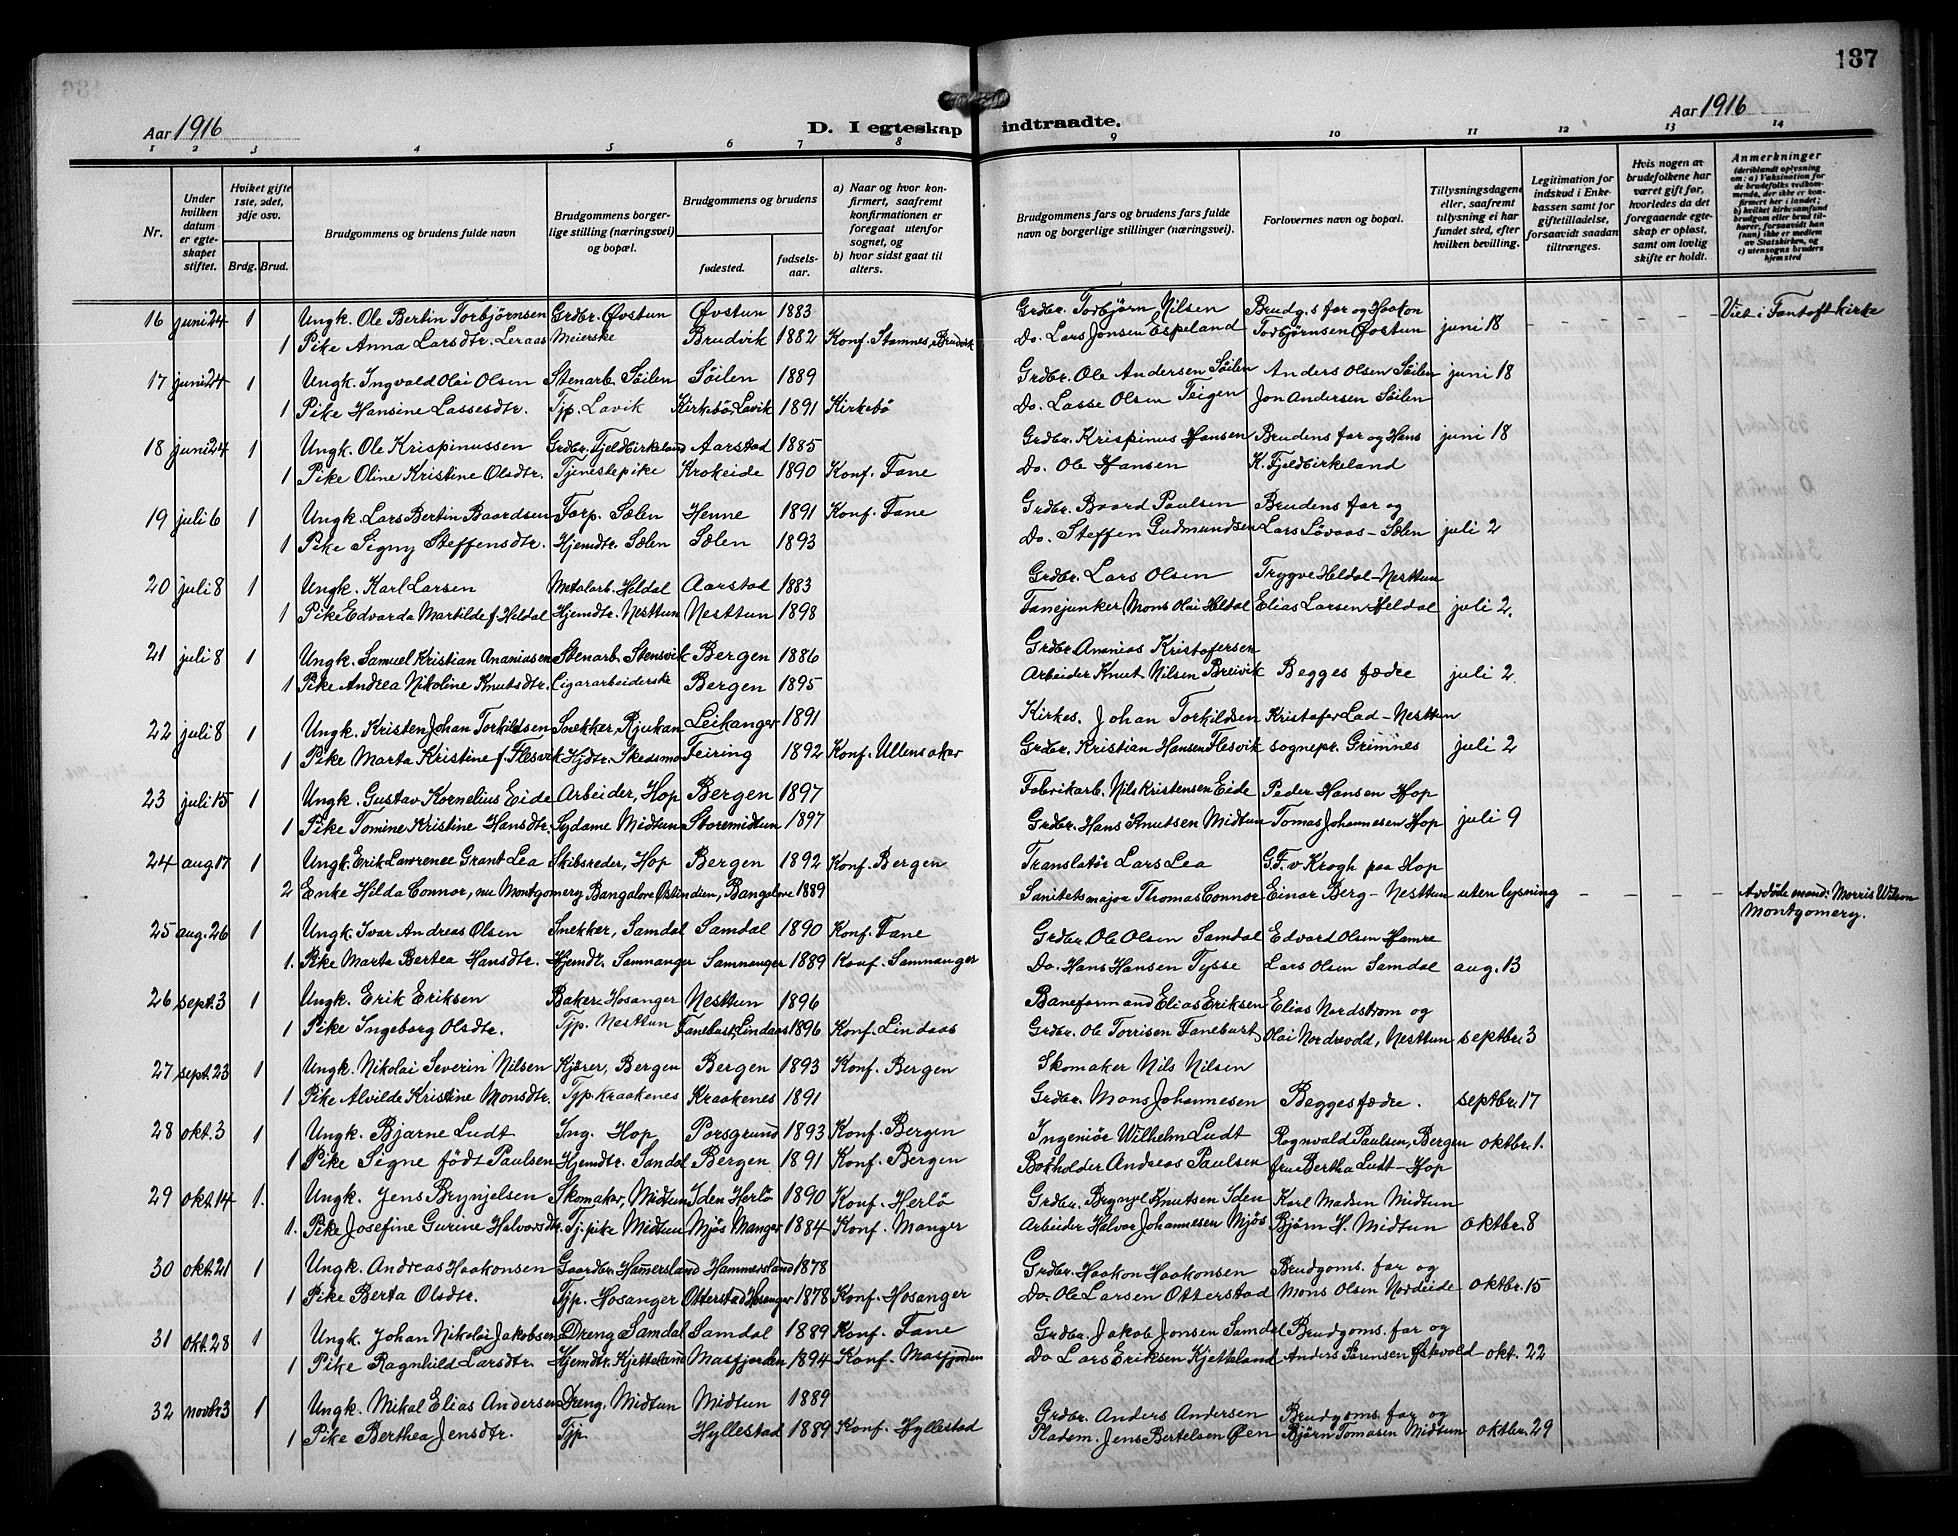 137
Aar 1916
D. I egteskap indtraadte.
Aar 1916
1 2 3 4 5 6 7 8 9 10 11 12 13 14
Nr.
Under hvilken datum er egteskapet stiftet.
Hvilket gifte 1ste, 2det, 3dje osv.
Brdg. Brud.
Brudgommens og brudens fulde navn
Brudgommens borgerlige stilling (næringsvei) og bopæl.
Brudgommens og brudens
fødested.
fødselsaar.
a) Naar og hvor konfirmert, saafremt konfirmationen er foregaat utenfor sognet, og
b) hvor sidst gaat til alters.
Brudgommens fars og brudens fars fulde navn og borgerlige stillinger (næringsvei).
Forlovernes navn og bopæl.
Tillysningsdagene eller, saafremt tillysning ei har fundet sted, efter hvilken bevilling.
Legitimation for indskud i Enkekassen samt for giftetilladelse, forsaavidt saadan tiltrænges.
Hvis nogen av brudefolkene har været gift før, hvorledes da det foregaaende egteskap er opløst, samt om lovlig skifte er holdt.
Anmerkninger (deriblandt oplysning om: a) Vaksination for de brudefolks vedkommende, der ikke er konfirmert her i landet; b) hvilket kirkesamfund brudgom eller brud tilhører, forsaavidt han (hun) ikke er medlem av Statskirken, og c) utensogns bruders hjemsted
16 juni 24 1 Ungk. Ole Bertin Torbjørnsen Grdbr. Øvstun Øvstun 1883 Grdbr. Torbjørn Nilsen Brudg.s far og Haakon Viet i Fantoft kirke
1 Pike Anna Larsdtr. Leraas Meierske Brudvik 1882 Konf. Stamnes, Bruvik Do. Lars Jonsen Espeland Torbjørnsen Øvstun juni 18
17 juni 24 1 Ungk. Ingvald Olai Olsen Stenarb. Söilen Söilen 1889 Grdbr. Ole Andersen Söilen Anders Olsen Söilen juni 18
1 Pike Hansine Lassesdtr. Tjp. Lavik Kirkebö, Lavik 1891 Kirkebö Do. Lasse Olsen Teigen Jon Andersen Söilen
18 juni 24 1 Ungk. Ole Krispinussen Grdbr. Fjeldbirkeland Aarstad 1885 Grdbr. Krispinus Hansen Brudens far og Hans juni 18
1 Pike Oline Kristine Olsdtr. Tjenestepike Krokeide 1890 Konf. Fane Do. Ole Hansen K. Fjeldbirkeland
19 juli 6 1 Ungk. Lars Bertin Baardsen Forp. Sælen Henne 1891 Konf. Fane Grdbr. Baard Paulsen Brudens far og
1 Pike Signy Steffensdtr. Hjemdtr. Sælen Sælen 1893 Do. Steffen Gudmundsen Lars Lövaas - Sælen juli 2
20 juli 8 1 Ungk. Karl Larsen Metalarb. Heldal Aarstad 1883 Grdbr. Lars Olsen Trygve Heldal - Nesttun
1 Pike Edvarda Martilde f. Heldal Hjemdtr. Nesttun Nesttun 1898 Fanejunker Mons Olai Heldal Elias Larsen Heldal juli 2.
21 juli 8 1 Ungk. Samuel Kristian Ananiasen Stenarb. Stensvik Bergen 1886 Grdbr. Ananias Kristofersen
1 Pike Andrea Nikoline Knutsdtr. Cigararbeiderske Bergen 1895 Arbeider Knut Nilsen Breivik Begges fædre juli 2.
22 juli 8 1 Ungk. Kristen Johan Torkildsen Snekker, Rjukan Leikanger 1891 Kirkes. Johan Torkildsen Kristofer Lad - Nesttun
1 Pike Marta Kristine f. Flesvik Hjdtr. Skedsmo Feiring 1892 Konf. Ullensaker Grdbr. Kristian Hansen Flesvik sognepr. Grimnes juli 2
23 juli 15 1 Ungk. Gustav Kornelius Eide Arbeider, Hop Bergen 1897 Fabrikarb. Nils Kristensen Eide Peder Hansen Hop
1 Pike Tomine Kristine Hansdtr. Sydame Midtun Storemidtun 1897 Grdbr. Hans Knutsen Midtun Tomas Johannesen Hop juli 9
24 aug 17 1 Ungk. Erik Lawrence Grant Lea Skibsreder, Hop Bergen 1892 Konf. Bergen Translatör Lars Lea G. F. v Krogh paa Hop
2 Enke Hilda Connor, nu Montgomery Bangalore Ostindien, Bangalore 1889 Sanitetsmajor Thomas Connor Einar Berg - Nesttun uten lysning Avdöde mand: Morris Wilson Montgomery.
25 aug. 26 1 Ungk. Ivar Andreas Olsen Snekker, Samdal Samdal 1890 Konf. Fane Grdbr. Ole Olsen Samdal Edvard Olsen Hamre
1. Pike Marta Bertea Hansdtr. Hjemdt. Samnanger Samnanger 1889 Konf. Samnanger Do. Hans Hansen Tysse Lars Olsen Samdal aug. 13
26 sept. 3 1 Ungk. Erik Eriksen Baker Hosanger Nesttun 1896 Baneformand Elias Eriksen Elias Nordstrom og
1 Pike Ingeborg Olsdtr. Tjp. Nesttun Fanebust, Lindaas 1896 Konf. Lindaas Grdbr. Ole Torrisen Fanebust Olai Nordevold, Nesttun septbr. 3
27 sept. 23 1 Ungk. Nikolai Severin Nilsen Kjörer, Bergen Bergen 1893 Konf. Bergen Skomaker Nils Nilsen
1 Pike Alvilde Kristine Monsdtr. Tjp. Kraakenes Kraakenes 1891 Grdbr. Mons Johannesen Begges fædre. septbr. 17
28 okt. 3 1 Ungk. Bjarne Ludt Ing. Hop Porsgrund 1893 Konf. Bergen Ingeniör Wilhelm Ludt Ragnvald Paulsen, Bergen oktbr. 1.
1 Pike Signe födt Paulsen Hjemdtr. Sandal Bergen 1891 Konf. Bergen Bokholder Andreas Paulsen frue Bertha Ludt - Hop
29 okt. 14 1. Ungk. Jens Brynjelsen Skomaker, Midtun Iden Herlö 1890 Konf. Herlö Grdbr. Brynjel Knutsen Iden Karl Madsen Midtun
1. Pike Josefine Gurine Halvorsdtr. Tj. pike Midtun Mjös Manger 1884 Konf. Manger Arbeider Halvor Johannesen Mjös Björn H. Midtun oktbr. 8
30 okt. 21 1 Ungk. Andreas Haakonsen Gaardbr. Hamersland Hammersland 1878 Grdbr. Haakon Haakonsen Brudgoms. far og
1 Pike Berta Olsdtr. Tjp. Hosanger Otterstad Hosanger 1878 Konf. Hosanger Do. Ole Larsen Otterstad Mons Olsen Nordeide oktbr. 15
31 okt. 28 1 Ungk. Johan Nikolai Jakobsen Dreng Samdal Samdal 1889 Konf. Fane Grdbr. Jakob Jonsen Samdal Brudgoms. far og
1 Pike Ragnhild Larsdtr. Hjemdtr. Kjetteland Masfjorden 1894 Konf. Masfjorden Do Lars Eriksen Kjetteland Anders Sörensen Öskvold okt. 22
32 novbr 3 1 Ungk. Mikal Elias Andersen Dreng, Midtun Midtun 1889 Grdbr. Anders Andersen Brudgoms. far og
1 Pike Berthea Jensdtr. Tjp. Hyllestad 1889 Konf. Hyllestad Pladsm. Jens Bertelsen Øen Björn Tomasen Midtun oktbr. 29